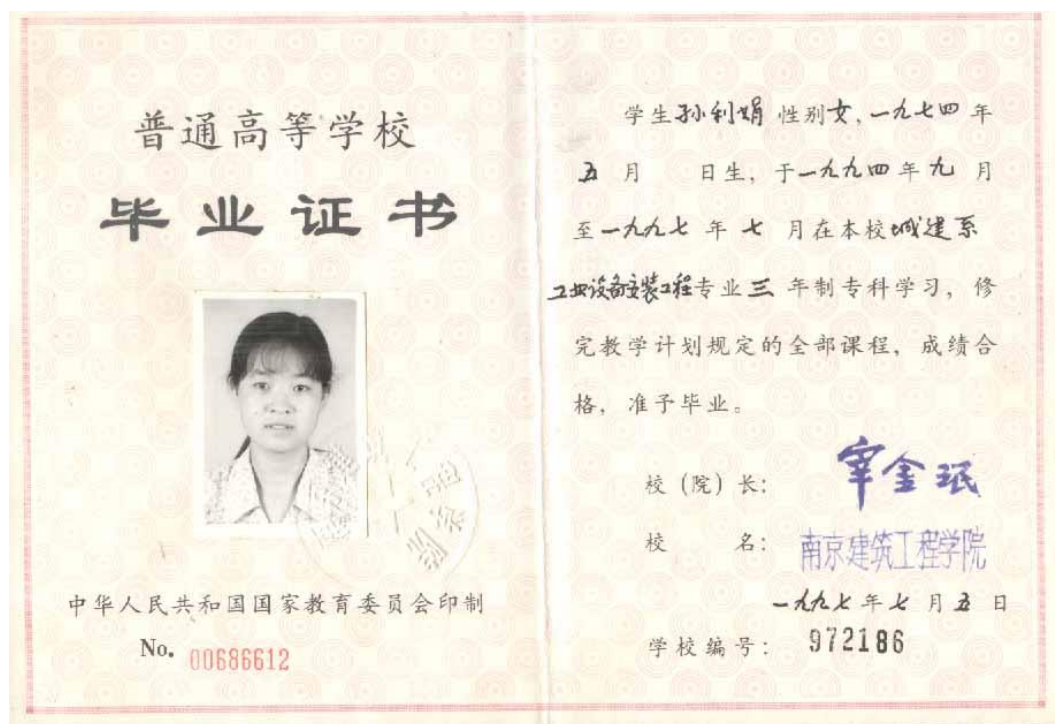 普通高等学校
毕业证书
中华人民共和国国家教育委员会印制
No. 00686612
学生孙利娟 性别女,一九七四年
五月 日生,于一九九四年九月
至一九九七年七月在本校城建系
工业设备安装工程专业三年制专科学习,修
完教学计划规定的全部课程,成绩合
格,准予毕业。
校(院)长: 宰金珉
校 名: 南京建筑工程学院
一九九七年七月五日
学校编号: 972186